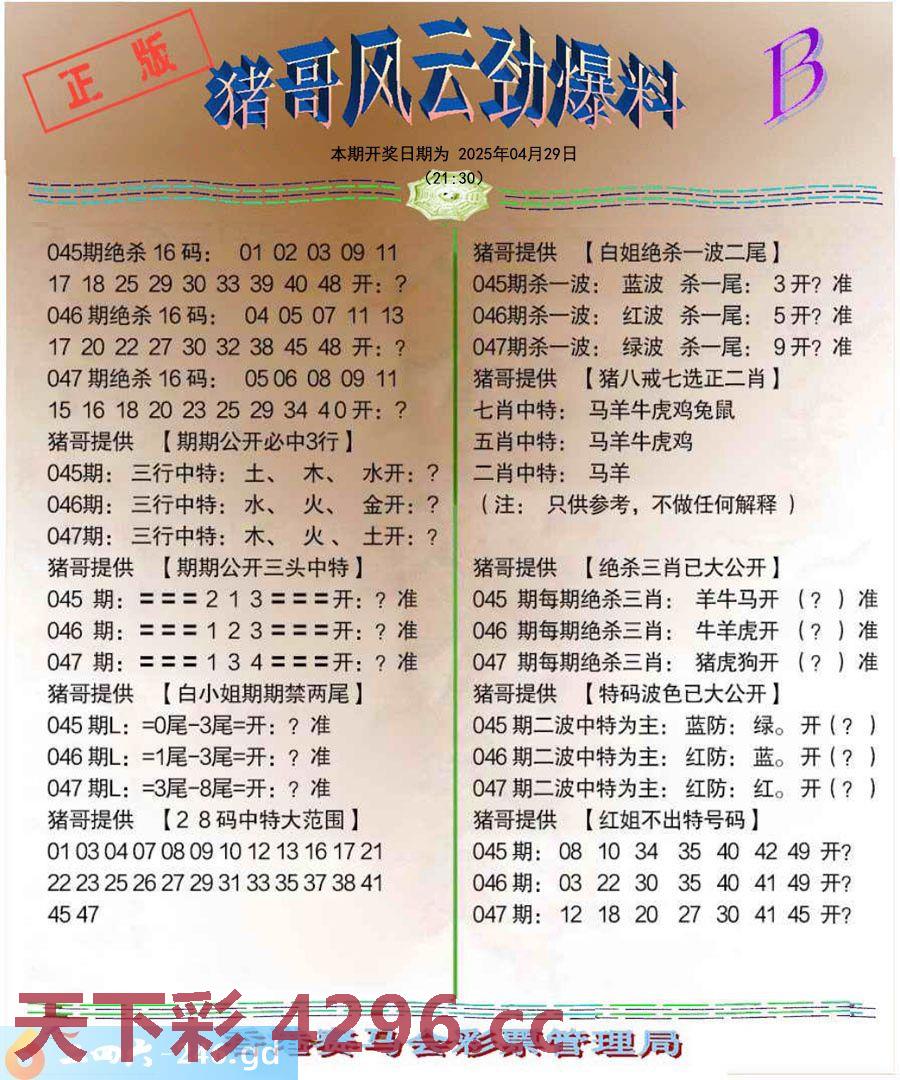 正版
猪哥风云劲爆料
B
本期开奖日期为 2025年04月29日
(21:30)
045期绝杀16码： 01 02 03 09 11
17 18 25 29 30 33 39 40 48 开：?
046期绝杀16码： 04 05 07 11 13
17 20 22 27 30 32 38 45 48 开：?
047期绝杀16码： 05 06 08 09 11
15 16 18 20 23 25 29 34 40开：?
猪哥提供 【期期公开必中3行】
045期：三行中特：土、 木、 水开：?
046期：三行中特：水、 火、 金开：?
047期：三行中特：木、 火、 土开：?
猪哥提供 【期期公开三头中特】
045 期：〓〓〓2 1 3〓〓〓开：? 准
046 期：〓〓〓1 2 3〓〓〓开：? 准
047 期：〓〓〓1 3 4〓〓〓开：? 准
猪哥提供 【白小姐期期禁两尾】
045期L：=0尾-3尾=开：? 准
046期L：=1尾-3尾=开：? 准
047期L：=3尾-8尾=开：? 准
猪哥提供 【28码中特大范围】
01 03 04 07 08 09 10 12 13 16 17 21
22 23 25 26 27 29 31 33 35 37 38 41
45 47
猪哥提供 【白姐绝杀一波二尾】
045期杀一波： 蓝波 杀一尾： 3开? 准
046期杀一波： 红波 杀一尾： 5开? 准
047期杀一波： 绿波 杀一尾： 9开? 准
猪哥提供 【猪八戒七选正二肖】
七肖中特： 马羊牛虎鸡兔鼠
五肖中特： 马羊牛虎鸡
二肖中特： 马羊
（注： 只供参考，不做任何解释 ）
猪哥提供 【绝杀三肖已大公开】
045 期每期绝杀三肖： 羊牛马开 （? ）准
046 期每期绝杀三肖： 牛羊虎开 （? ）准
047 期每期绝杀三肖： 猪虎狗开 （? ）准
猪哥提供 【特码波色已大公开】
045期二波中特为主： 蓝防： 绿。 开（? ）
046期二波中特为主： 红防： 蓝。 开（? ）
047期二波中特为主： 红防： 红。 开（? ）
猪哥提供 【红姐不出特号码】
045期： 08 10 34 35 40 42 49 开?
046期： 03 22 30 35 40 41 49 开?
047期： 12 18 20 27 30 41 45 开?
天下彩 4296.cc
马会彩票管理局